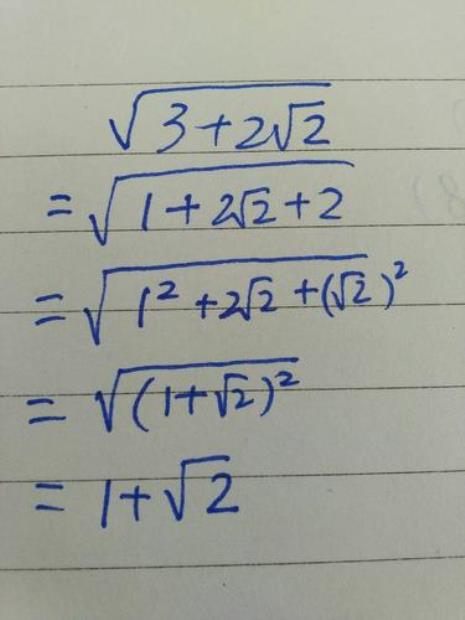 √(3+2√2)
= √(1+2√2+2)
= √(1²+2√2+(√2)²)
= √((1+√2)²)
= 1+√2